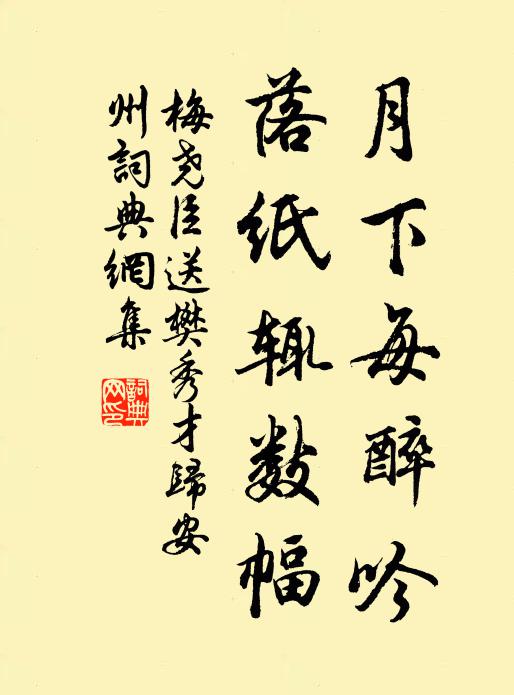 月下每醉吟
落纸辄数幅
梅尧臣送樊秀才歸安
州詞典網集
詞典
网印